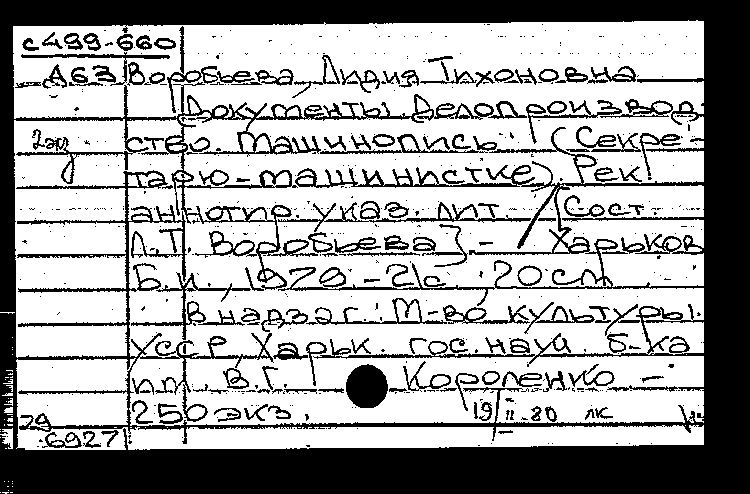 с499-660
А63 Воробьева, Лидия Тихоновна
Документы. Делопроизвод-
2 экз ство. Машинопись: (Секре-
тарю-машинистке). Рек.
аннотир. указ. лит. [Сост.
Л.Т. Воробьева]. - Харьков
Б.и., 1979. - 21с ; 20 см.
В надзаг.: М-во культуры
УССР, Харьк. гос. науч. б-ка
им. В.Г. Короленко -
250 экз. 19/II-80 лк
79
6927